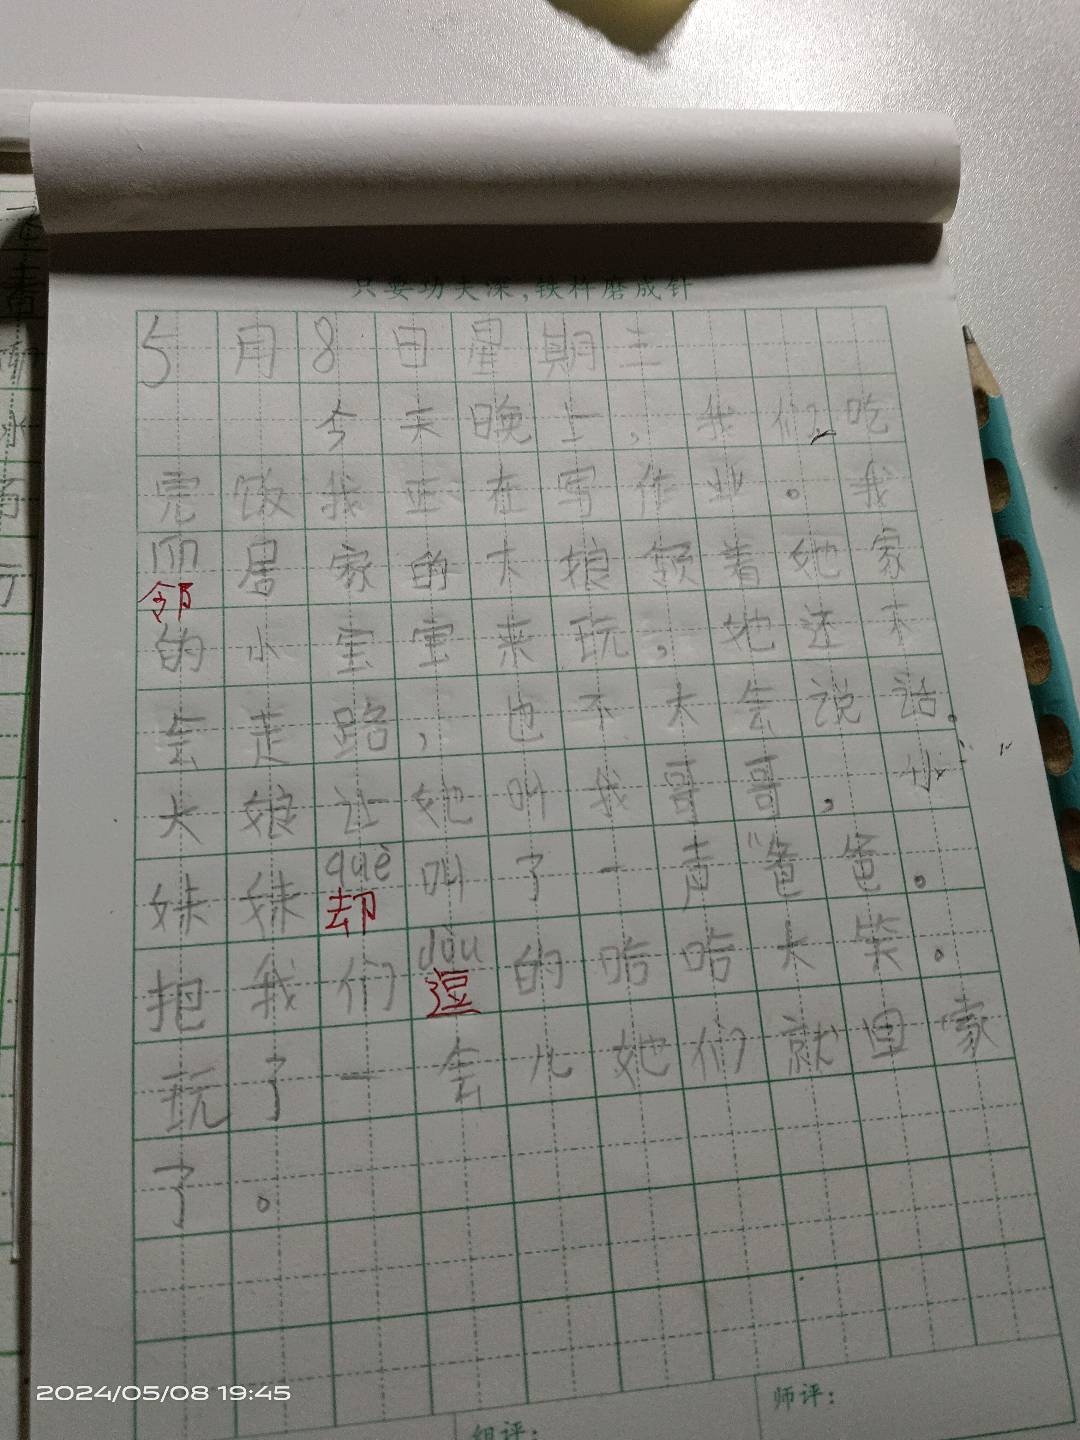 只要功夫深,铁杵磨成针
5月8日星期三
今天晚上,我们吃
完饭我正在写作业。我
居家的大娘领着她家
邻
的小宝宝来玩,她还不
会走路,也不大会说话。
大娘让她叫我哥哥,小
妹妹què叫了一声“爸爸。
却
把我们dòu的哈哈大笑。
逗
玩了一会儿她们就回家
了。
组评:
师评:
2024/05/08 19:45